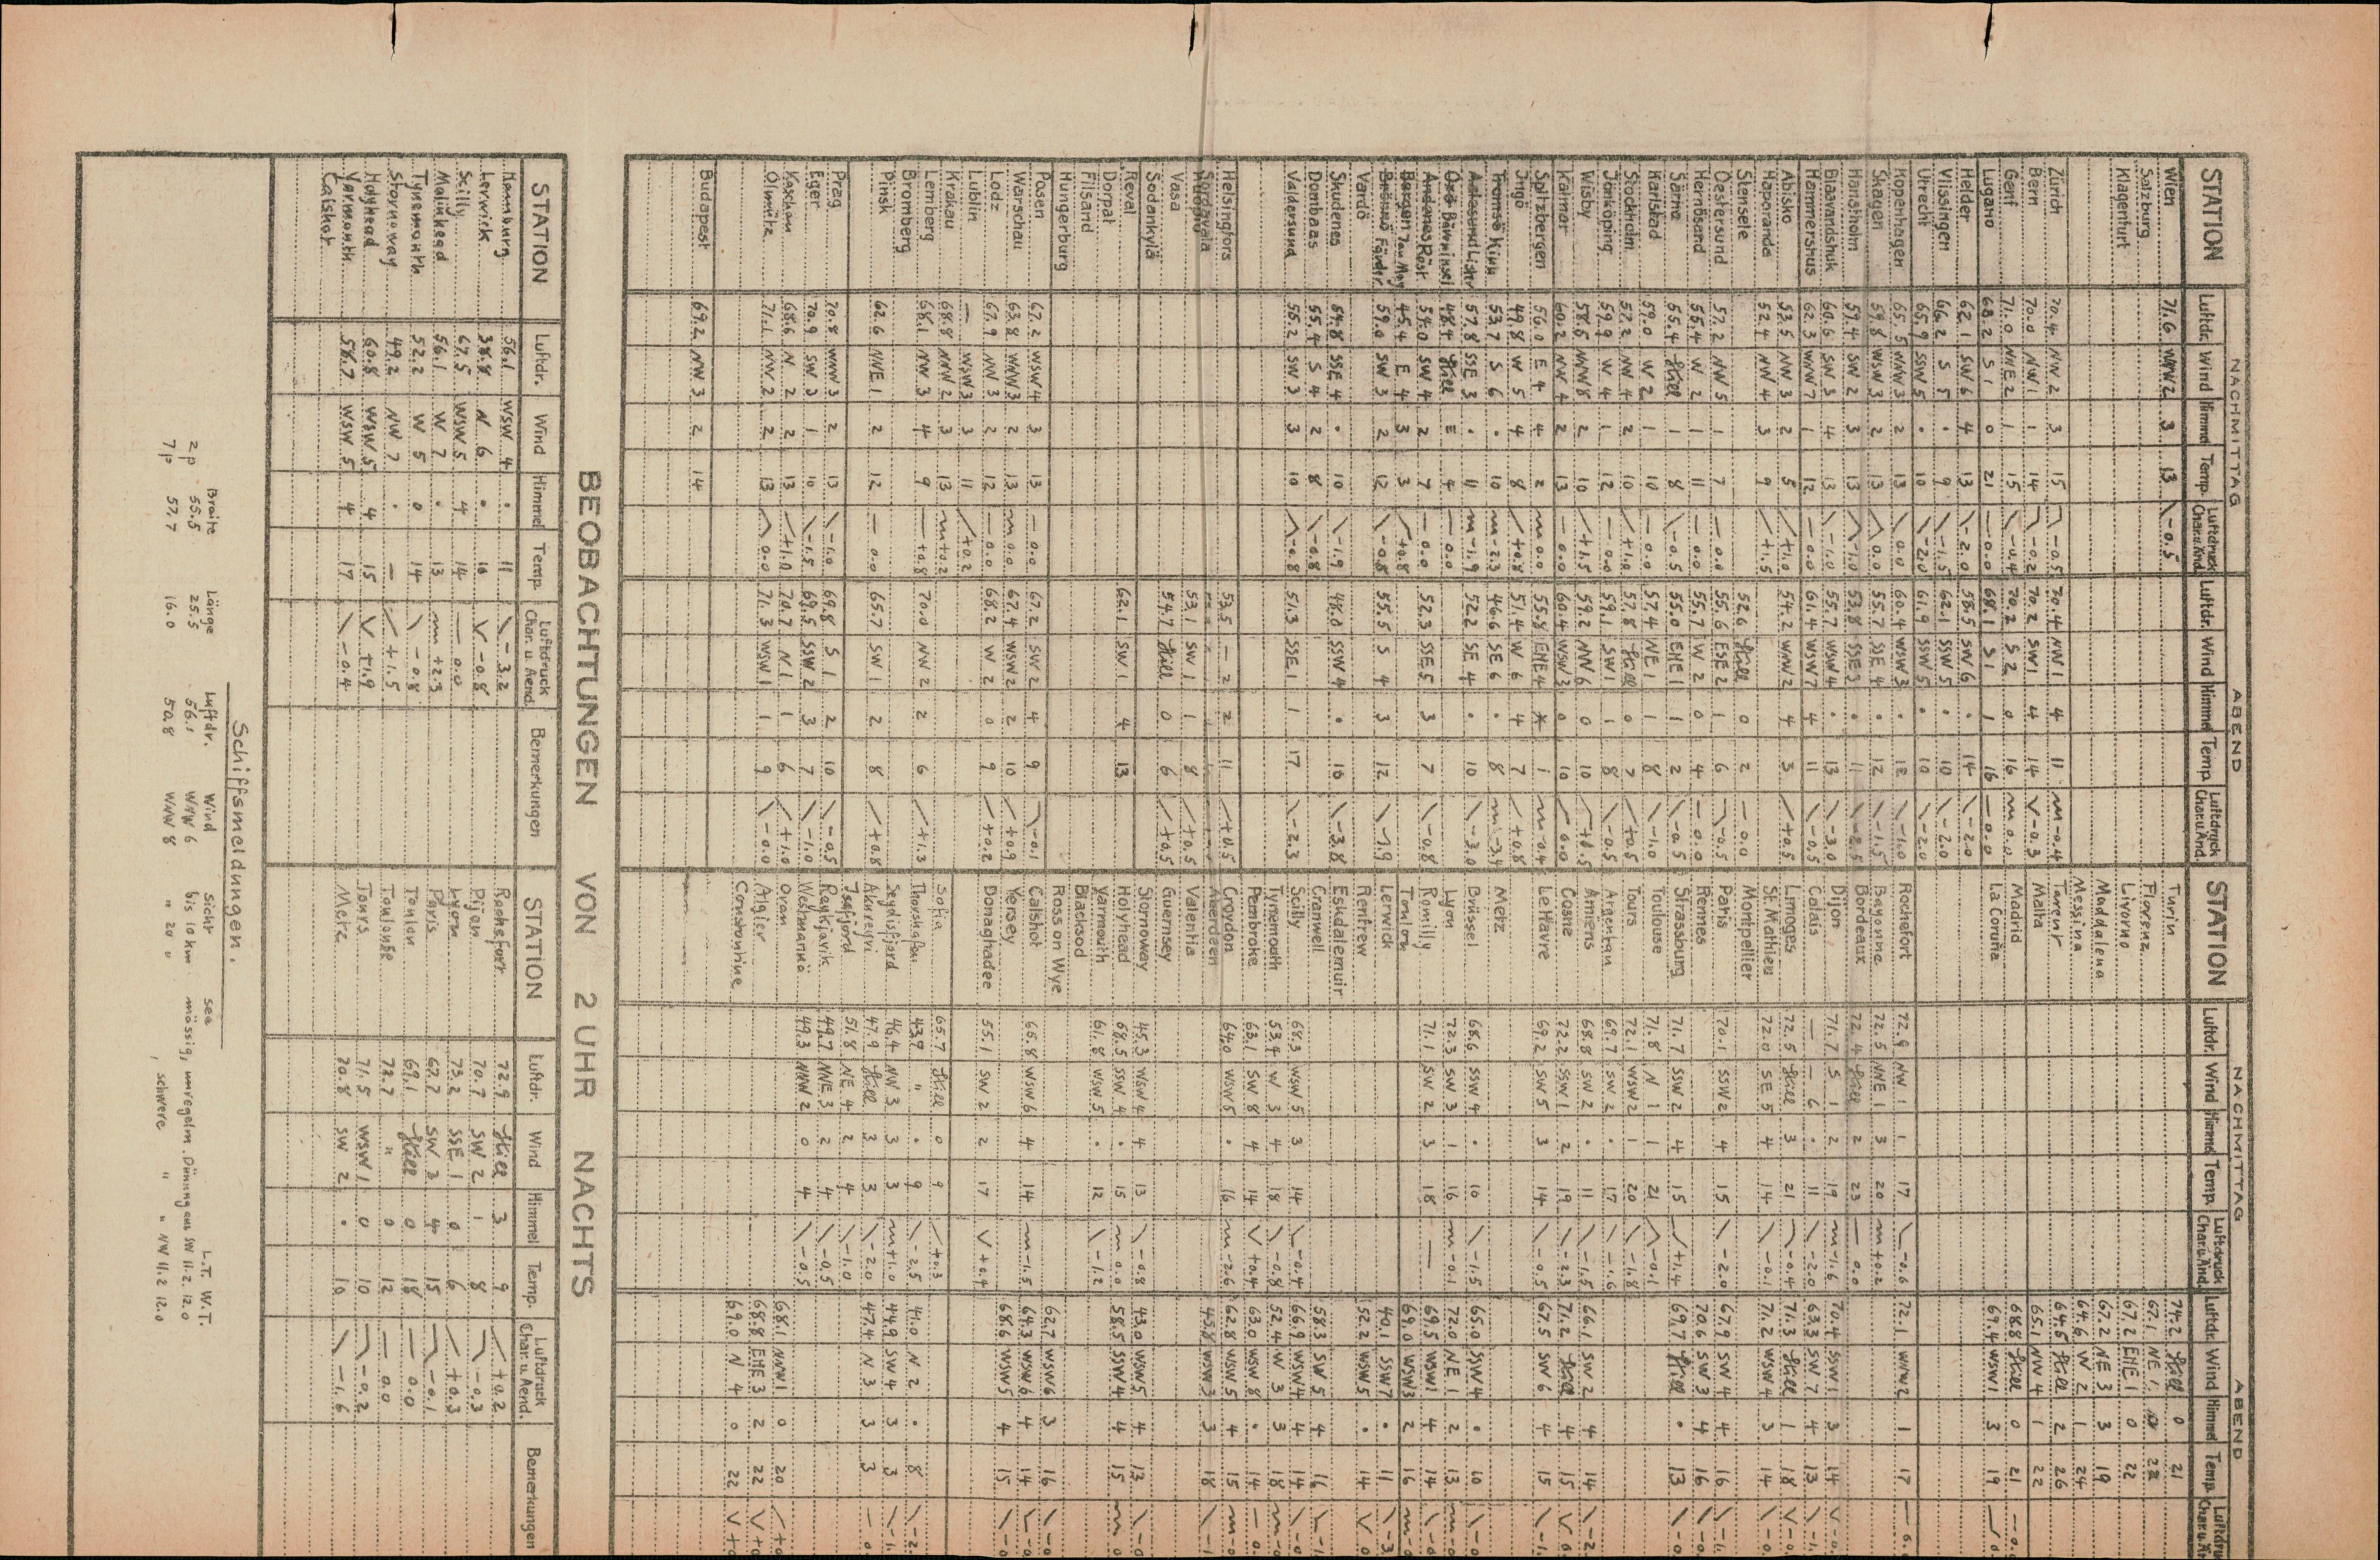 NACHMITTAG ABEND
STATION Luftdr. Wind Himmel Temp. Luftdruck Char. u. Änd. Luftdr. Wind Himmel Temp. Luftdruck Char. u. Änd.
Wien 71.6 WNW 2 3 13 -0.5
Salzburg
Klagenfurt
Zürich 70.4 NW 2 3 15 -0.5 70.4 NW 1 4 11 -0.4
Bern 70.0 NW 1 1 14 -0.2 70.2 SW 1 4 14 -0.3
Genf 71.0 NNE 2 1 15 -0.4 70.2 S 2 0 16 0.0
Lugano 68.2 S 1 0 21 -0.0 68.1 S 1 1 16 -0.0
Helder 62.1 SW 6 4 13 -2.0 58.5 SW 6 • 14 -2.0
Vlissingen 66.2 S 5 • 9 -1.5 62.1 SSW 5 • 10 -2.0
Utrecht 65.9 SSW 5 • 10 -2.0 61.9 SSW 5 • 10 -2.0
Kopenhagen 65.5 WNW 3 2 13 0.0 60.4 WSW 3 • 12 -1.0
Skagen 59.8 WSW 3 2 13 0.0 55.7 SSE 4 • 12 -1.5
Hanstholm 59.4 SW 2 3 13 -1.0 53.8 SSE 3 • 11 -2.5
Blaavandshuk 60.6 SW 3 4 13 -1.0 55.7 WSW 4 • 13 -3.0
Hammershus 62.3 WNW 7 1 12 -0.0 61.4 WSW 7 4 11 -0.5
Abisko 53.5 NW 3 2 5 +1.0 54.2 WNW 2 4 3 +0.5
Haparanda 52.4 NW 4 3 9 +1.5
Stensele 52.6 still 0 2 -0.0
Oestersund 57.2 NW 5 1 7 -0.0 55.6 ESE 2 1 6 -0.5
Hernösand 55.4 W 2 1 11 -0.0 55.7 W 2 0 4 -0.0
Särna 55.4 still 1 8 -0.5 55.0 ENE 1 1 2 -0.5
Karlstad 59.0 W 2 1 10 -0.0 57.4 NE 1 1 8 -1.0
Stockholm 57.2 NW 4 2 10 +1.0 57.8 still 0 7 +0.5
Jönköping 59.9 W 4 1 12 -0.0 59.1 SW 1 1 8 -0.5
Wisby 58.5 NW 8 2 10 +1.5 59.2 NW 6 0 10 +0.5
Kalmar 60.2 NW 4 2 13 -0.0 60.4 WSW 3 0 10 -0.0
Spitzbergen 56.0 E 4 4 2 0.0 55.8 ENE 4 * 1 -0.4
Ingö 49.8 W 5 4 8 +0.8 51.4 W 6 4 7 +0.8
Tromsö Kinn 53.7 S 6 • 10 -2.3 46.6 SE 6 • 8 -3.4
Aalesund Lister 57.8 SSE 3 • 11 -1.9 52.2 SE 4 • 10 -3.0
Oxö Bäreninsel 48.4 still E 4 -0.0
Andenes Röst 54.0 SW 4 2 7 -0.0 52.3 SSE 5 3 7 -0.8
Bergen Jan May 45.4 E 4 3 3 +0.8
Brönnö Färder 59.0 SW 3 2 12 -0.8 55.5 S 4 3 12 -1.9
Vardö
Skudenes 54.8 SSE 4 • 10 -1.9 48.0 SSW 4 • 10 -3.8
Dombaas 55.4 S 4 2 8 -0.8
Valdersund 55.2 SW 3 3 10 -0.8 51.3 SSE 1 1 17 -2.3
Helsingfors 53.5 — 2 2 11 +0.5
Sordavala
Kuopio 53.1 SW 1 1 8 +0.5
Vasa 54.7 still 0 6 +0.5
Sodankylä
Reval 62.1 SW 1 4 13
Dorpat
Filsand
Hungerburg
Posen 67.2 WSW 4 3 13 -0.0 67.2 SW 2 4 9 -0.1
Warschau 63.8 WNW 3 2 13 0.0 67.4 WSW 2 2 10 +0.9
Lodz 67.9 NW 3 2 12 -0.0 68.2 W 2 0 9 +0.2
Lublin — WSW 3 3 11 +0.2
Krakau 68.8 NNW 2 3 13 +0.2
Lemberg 68.1 NW 3 4 9 +0.8 70.0 NW 2 2 6 +1.3
Bromberg
Pinsk 62.6 NNE 1 2 12 -0.0 65.7 SW 1 2 8 +0.8
Prag 70.8 WNW 3 2 13 -1.0 69.8 S 1 2 10 -0.5
Eger 70.9 SW 3 1 10 -1.5 69.5 SSW 2 3 7 -1.0
Kaschau 68.6 N 2 2 13 +1.0 70.7 N 1 1 6 +1.0
Olmütz 71.1 NW 2 2 13 0.0 71.3 WSW 1 1 9 -0.0
Budapest 69.2 NW 3 2 14
NACHMITTAG ABEND
STATION Luftdr. Wind Himmel Temp. Luftdruck Char. u. Änd. Luftdr. Wind Himmel Temp. Luftdruck Char. u. Än
Turin 74.2 still 0 21
Florenz 67.1 NE 1 0 22
Livorno 67.2 ENE 1 0 22
Maddalena 67.2 NE 3 3 19
Messina 64.6 W 2 1 24
Tarent 64.5 still 2 26
Malta 65.1 NW 4 1 22
Madrid 68.8 still 0 21
La Coruña 69.4 WSW 1 3 19
Rochefort 72.9 NW 1 1 17 -0.6 72.1 WNW 2 1 17
Bayonne 72.5 NNE 1 3 20 +0.2
Bordeaux 72.4 still 2 23 0.0
Dijon 71.7 S 1 2 19 -1.6 70.4 SSW 1 3 14
Calais — — 6 • 11 -2.0 63.3 SW 7 4 13
Limoges 72.5 still 3 21 -0.4 71.3 still 1 18
St. Mathieu 72.0 SE 5 4 14 -0.1 71.2 WSW 4 3 14
Montpellier
Paris 70.1 SSW 2 4 15 -2.0 67.9 SW 4 4 16
Rennes 70.6 SW 3 4 16
Strassburg 71.7 SSW 2 4 15 +1.4 69.7 still • 13
Toulouse 71.8 N 1 1 21 -0.1
Tours 72.1 WSW 2 1 20 -1.8
Argentan 69.7 SW 2 • 17 -1.6
Amiens 68.8 SW 2 • 11 -1.5 66.1 SW 2 4 14
Cosne 72.2 SSW 1 2 19 -2.3 71.2 still 4 15
Le Havre 69.2 SW 5 3 14 -0.5 67.5 SW 6 4 15
Metz
Brüssel 68.6 SSW 4 • 10 -1.5 65.0 SSW 4 • 10
Lyon 72.3 SW 3 1 16 -0.1 72.0 NE 1 2 13
Romilly 71.1 SW 2 3 18 — 69.5 WSW 1 4 14
Toulon 69.0 WSW 3 2 16
Lerwick 40.1 SSW 7 • 11
Renfrew 52.2 WSW 5 • 14
Eskdalemuir
Cranwell 58.3 SW 5 4 16
Scilly 68.3 WSW 5 3 14 -0.4 66.9 WSW 4 4 14
Tynemouth 53.4 W 3 4 18 -0.8 52.4 W 3 3 18
Pembroke 63.1 SW 8 4 14 +0.4 63.0 WSW 8 • 14
Croydon 64.0 WSW 5 • 16 -2.6 62.8 WSW 5 4 15
Aberdeen 45.8 WSW 3 3 18
Valentia
Guernsey
Stornoway 45.3 WSW 4 4 13 -0.8 43.0 WSW 5 4 13
Holyhead 68.5 SSW 4 • 15 -0.0 58.5 SSW 4 4 15
Yarmouth 61.8 WSW 5 • 12 -1.2
Blacksod
Ross on Wye 62.7 WSW 6 3 16
Calshot 65.8 WSW 6 4 14 -1.5 64.3 WSW 6 4 14
Versey 68.6 WSW 5 4 15
Donaghadee 55.1 SW 2 2 17 +0.4
Sofia 65.7 still 0 9 +0.3
Thorshavn 43.9 " • 9 -2.5 41.0 N 2 • 8
Seydisfjord 46.4 NW 3 3 3 +1.0 44.9 SW 4 3 3
Akureyri 47.9 still 3 3 -2.0 47.4 N 3 3 3
Isafjord 51.8 NE 4 2 4 -1.0
Reykjavik 49.7 NNE 3 2 4 -0.5
Westmannö 49.3 NNW 2 0 4 -0.5
Oran 68.1 NNW 1 0 20
Algier 68.8 ENE 3 2 22
Constantine 69.0 N 4 0 22
BEOBACHTUNGEN VON 2 UHR NACHTS
STATION Luftdr. Wind Himmel Temp. Luftdruck Char. u. Aend. Bemerkungen
Hamburg 56.1 WSW 4 • 11 -3.2
Lerwick 38.8 N 6 • 10 -0.8
Scilly 67.5 WSW 5 4 14 0.0
Malinhead 56.1 W 7 • 13 +2.3
Tynemouth 52.2 W 5 0 14 -0.8
Stornoway 49.2 NW 7 • — +1.5
Holyhead 60.8 WSW 5 4 15 +1.9
Yarmouth 58.7 WSW 5 4 17 -0.4
Calshot
STATION Luftdr. Wind Himmel Temp. Luftdruck Char. u. Aend. Bemerkungen
Rochefort 72.9 still 3 9 +0.2
Dijon 70.7 SW 2 1 8 -0.3
Lyon 73.2 SSE 1 0 6 +0.3
Paris 67.7 SW 3 4 15 -0.1
Toulon 69.1 still 0 18 0.0
Toulouse 72.7 " 0 12 0.0
Tours 71.5 WSW 1 0 10 -0.2
Metz 70.8 SW 2 • 10 -1.6
Schiffsmeldungen.
Breite Länge Luftdr. Wind Sicht See L.T. W.T.
2p 55.5 25.5 56.1 WNW 6 bis 10 km mässig, unregelm. Dünung aus SW 11.2 12.0
7p 57.7 16.0 50.8 WNW 8 " 20 " , schwere " " NW 11.2 12.0